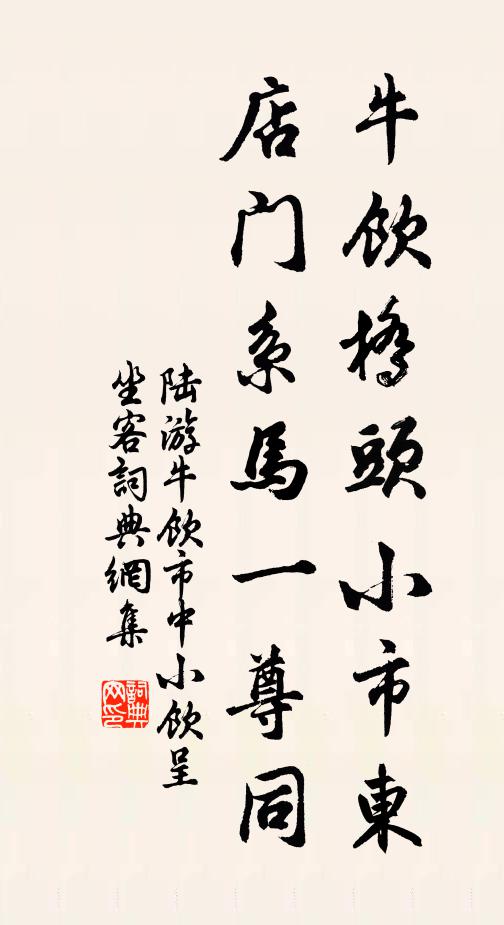 牛飲橋頭小市東
店门系馬一尊同
陆游牛飲市中小飲呈
坐客詞典網集
詞典网印